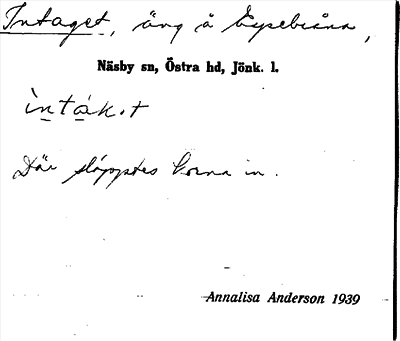 Intaget, äng å Eysebiåna,
Näsby sn, Östra hd, Jönk. l.
ìnták.t
Där släpptes korna in.
Annalisa Anderson 1939